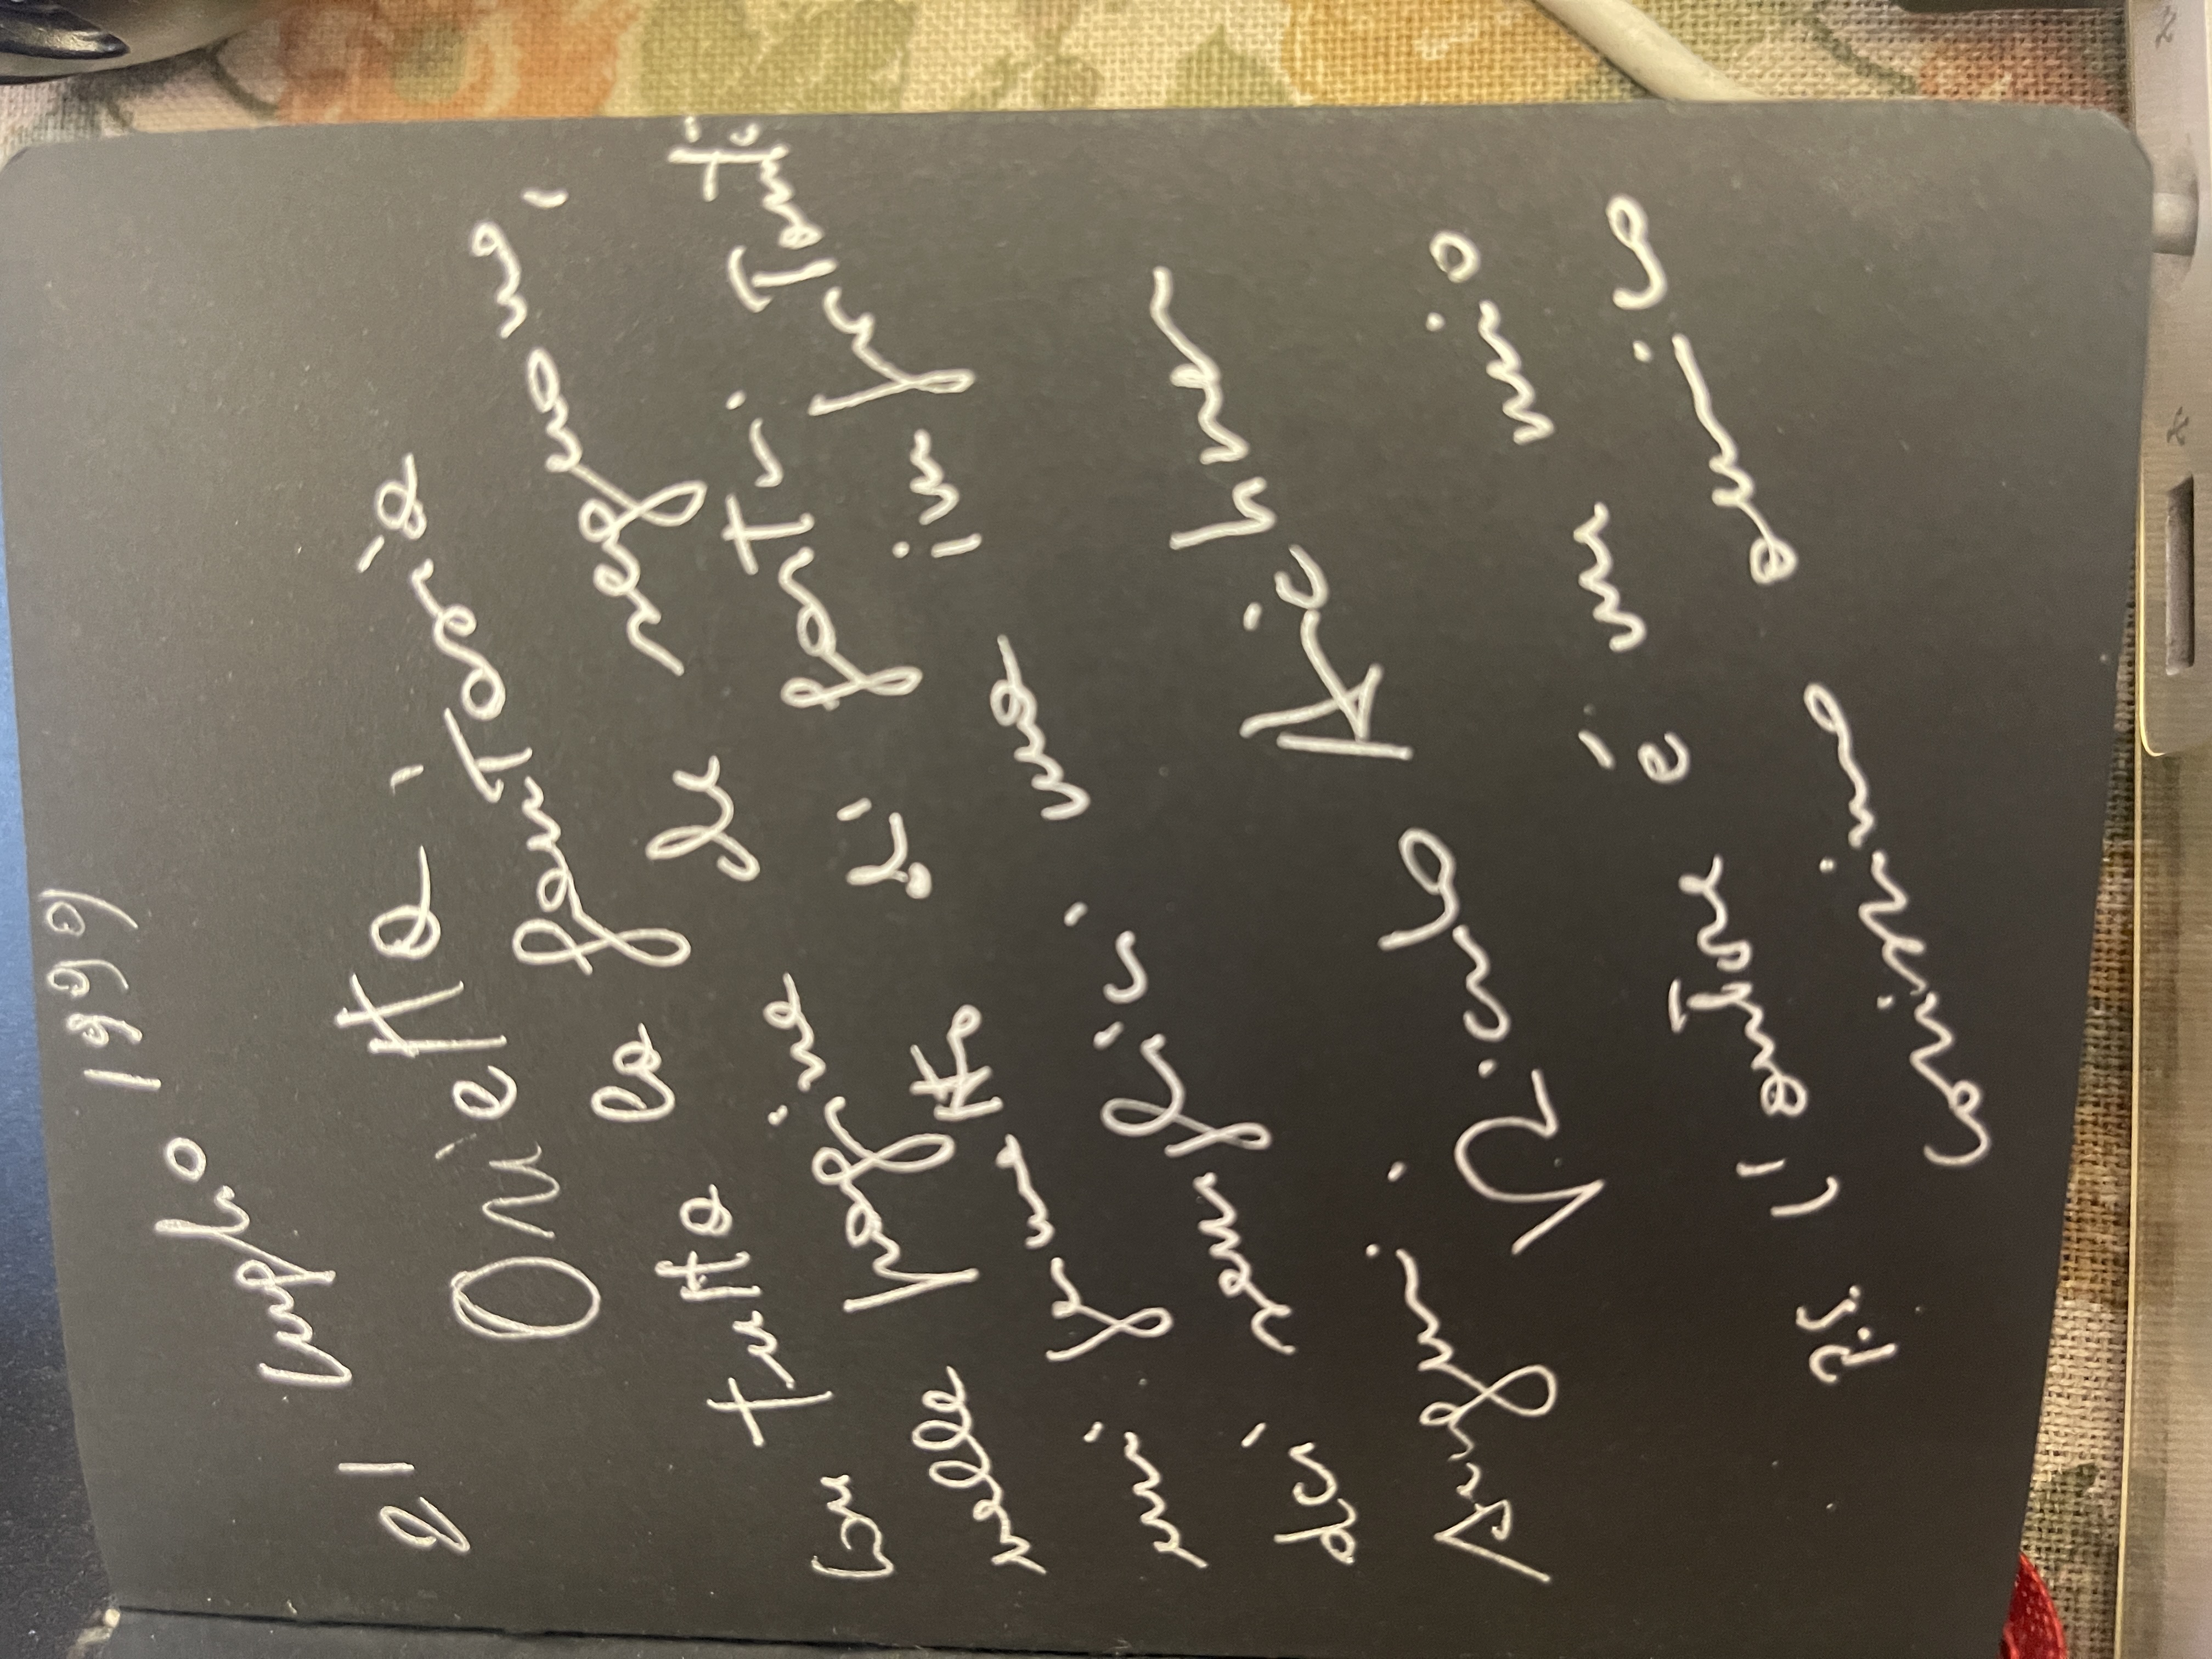 21 luglio 1999
Orietta,
Con tutta la fantasia
nelle pagine che seguono,
mi permetto di farti
dei semplici ma importanti
Auguri.
Riccardo Aichner
P.S. l'autore é un mio
carissimo amico